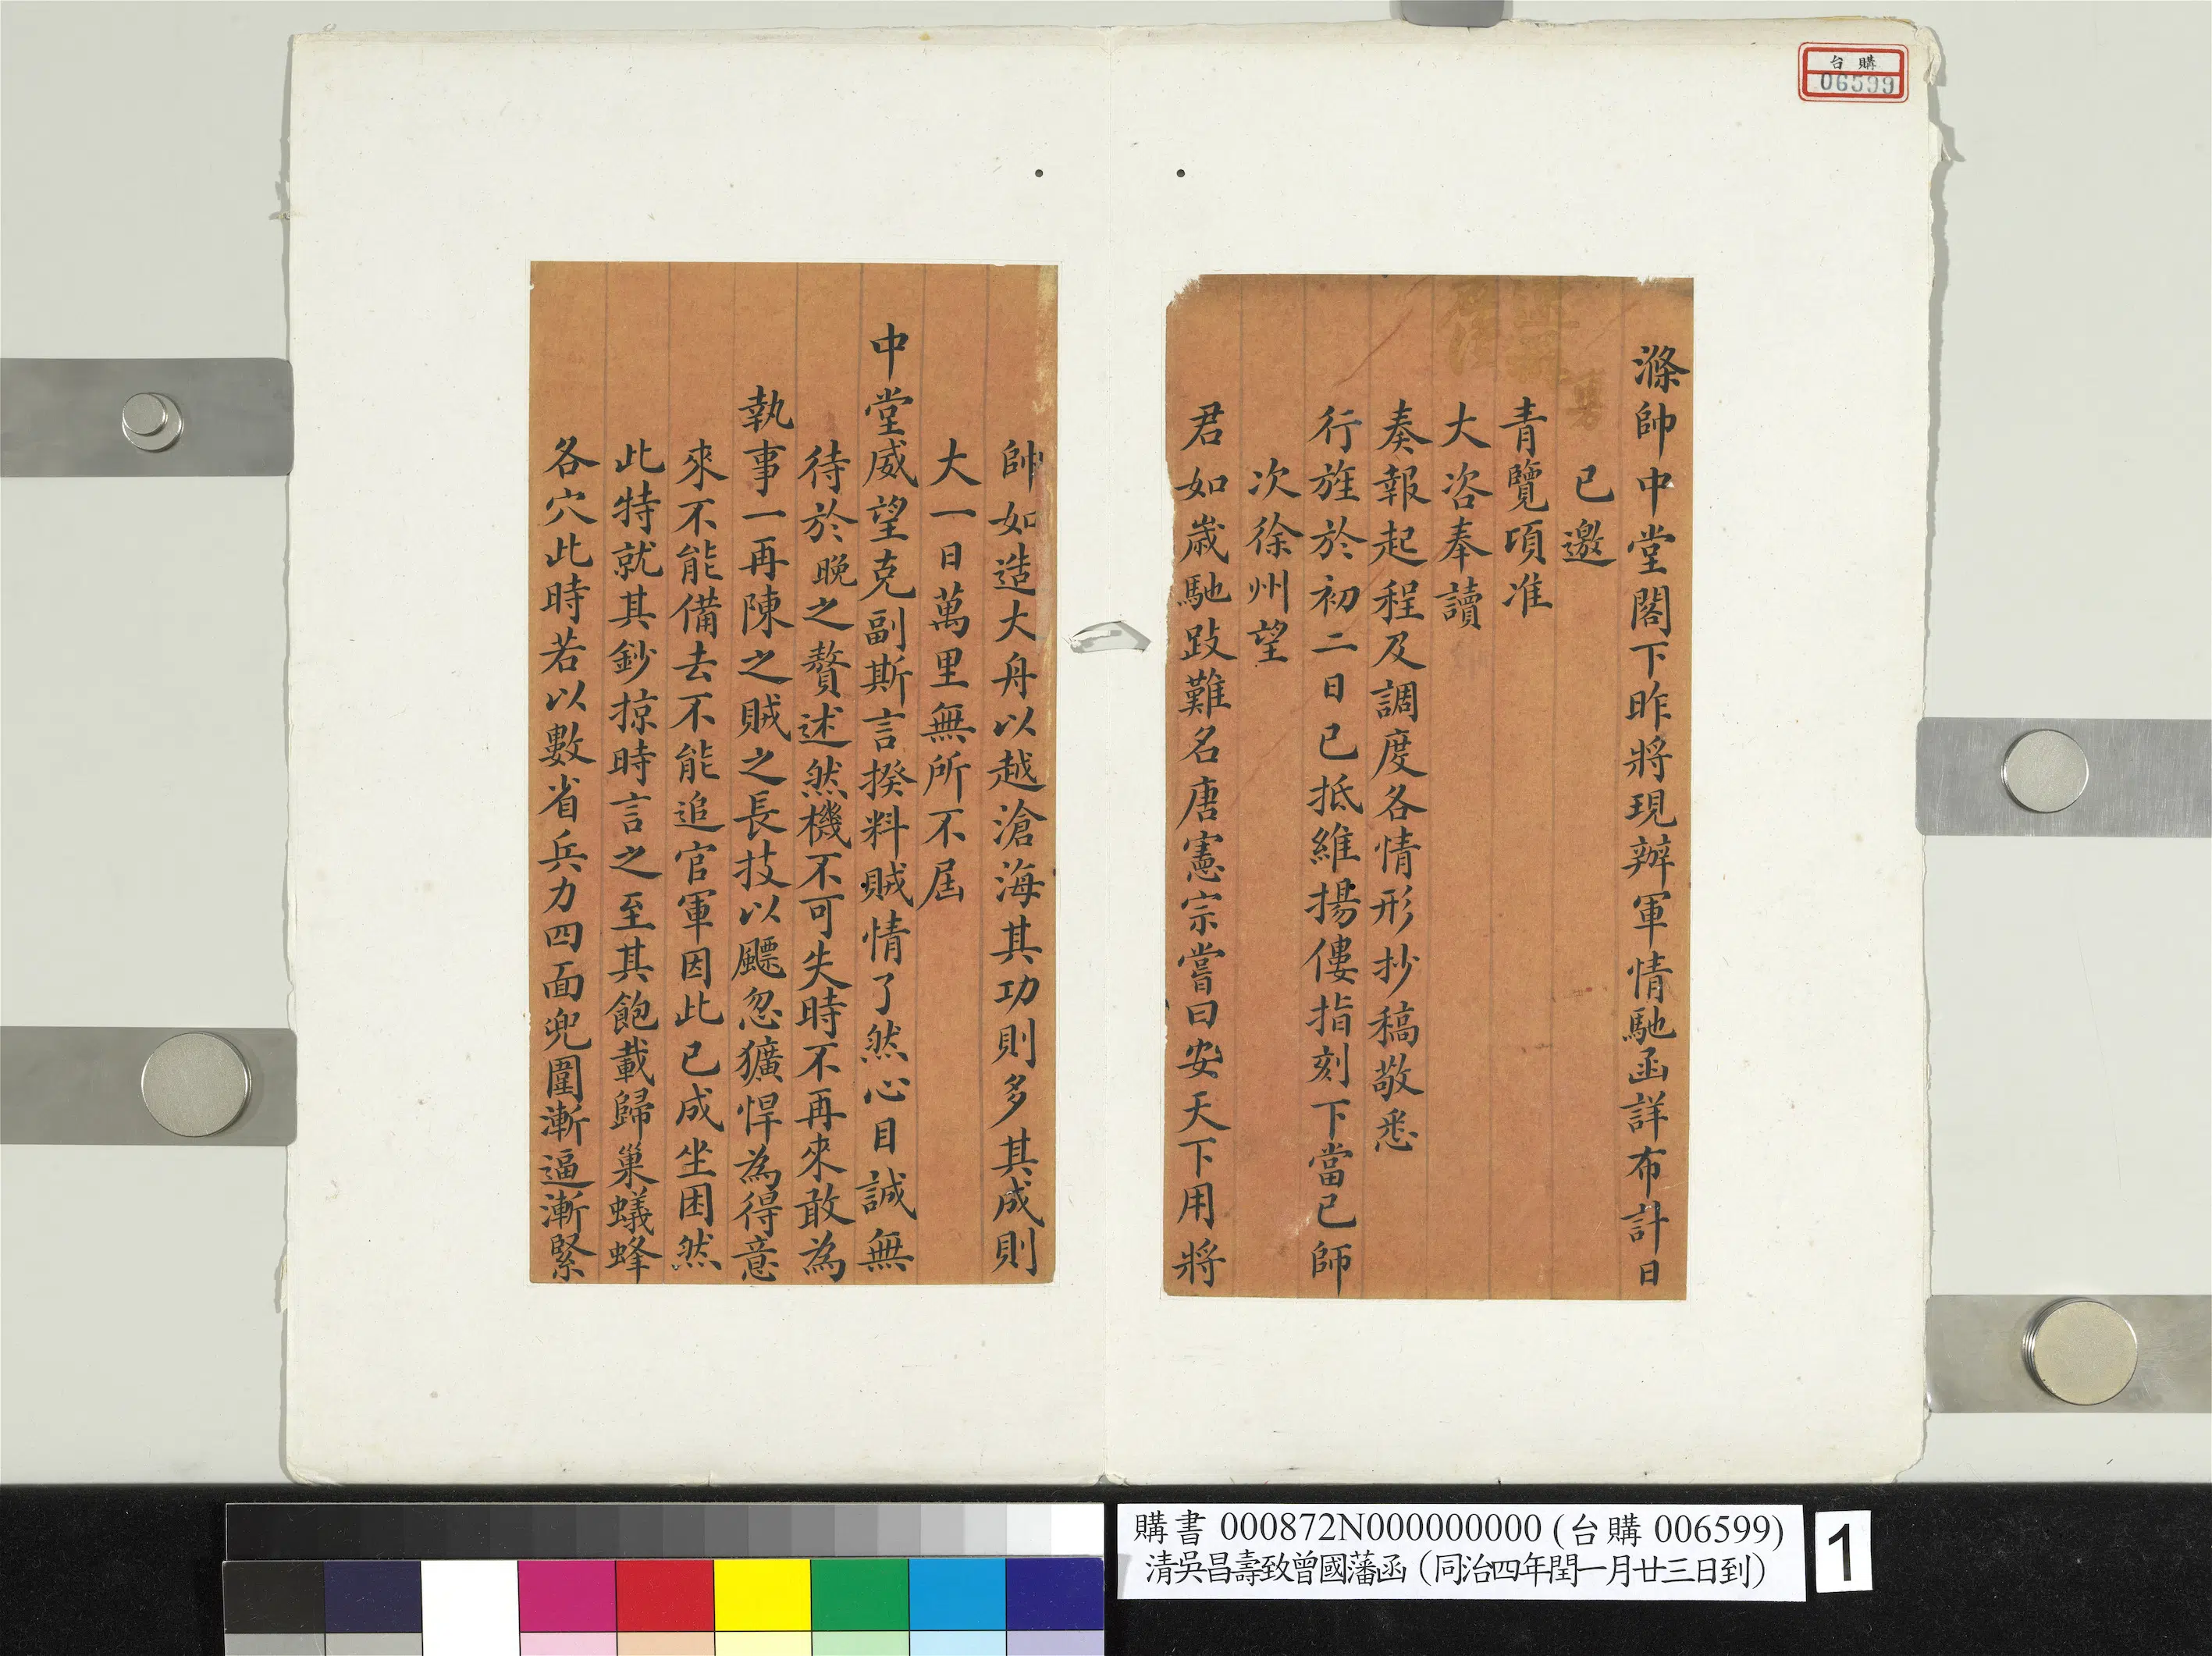 台購
06599
滌帥中堂閣下昨將現辦軍情馳函詳布計日
已邀
青覽項准
大咨奉讀
奏報起程及調度各情形抄稿敬悉
行旌於初二日已抵維揚僂指刻下當已師
次徐州望
君如歲馳跂難名唐憲宗嘗曰安天下用將
帥如造大舟以越滄海其功則多其成則
大一日萬里無所不屆
中堂威望克副斯言揆料賊情了然心目誠無
待於晚之贅述然機不可失時不再來敢為
執事一再陳之賊之長技以飃忽獷悍為得意
來不能備去不能追官軍因此已成坐困然
此特就其鈔掠時言之至其飽載歸巢蟻蜂
各穴此時若以數省兵力四面兜圍漸逼漸緊
購書 000872N000000000 (台購 006599)
清吳昌壽致曾國藩函（同治四年閏一月廿三日到）
1